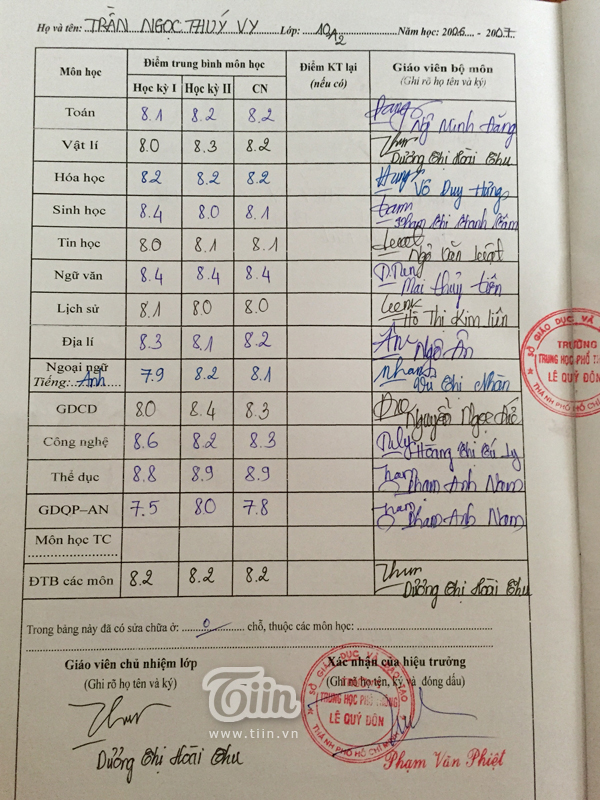 Họ và tên: TRẦN NGỌC THUÝ VY Lớp: 10A2 Năm học: 2006 - 2007
Môn học Điểm trung bình môn học Điểm KT lại (nếu có) Giáo viên bộ môn (Ghi rõ họ tên và ký)
Học kỳ I Học kỳ II CN
Toán 8.1 8.2 8.2 Ngô Minh Đăng
Vật lí 8.0 8.3 8.2 Dương Thị Hoài Thu
Hóa học 8.2 8.2 8.2 Võ Duy Hùng
Sinh học 8.4 8.0 8.1
Tin học 8.0 8.1 8.1 Ngô Văn Luật
Ngữ văn 8.4 8.4 8.4 Mai Thủy Tiên
Lịch sử 8.1 8.0 8.0 Hồ Thị Kim Liên
Địa lí 8.3 8.1 8.2 Ân Ngô Ân
Ngoại ngữ
Tiếng: Anh 7.9 8.2 8.1 Thị Nhàn
GDCD 8.0 8.4 8.3 Nguyễn Ngọc
Công nghệ 8.6 8.2 8.3 Hoàng Thị Ly
Thể dục 8.8 8.9 8.9 Phạm Anh Nam
GDQP–AN 7.5 8.0 7.8 Phạm Anh Nam
Môn học TC
ĐTB các môn 8.2 8.2 8.2 Dương Thị Hoài Thu
Trong bảng này đã có sửa chữa ở: 0 chỗ, thuộc các môn học:
Giáo viên chủ nhiệm lớp Xác nhận của hiệu trưởng
(Ghi rõ họ tên và ký) (Ghi rõ họ tên, ký và đóng dấu)
Tiin
www.tiin.vn
Dương Thị Hoài Thu
Phạm Văn Phiệt
SỞ GIÁO DỤC VÀ ĐÀO TẠO
TRƯỜNG
TRUNG HỌC PHỔ THÔNG
LÊ QUÝ ĐÔN
THÀNH PHỐ HỒ CHÍ MINH
SỞ GIÁO DỤC VÀ
TRƯỜNG
TRUNG HỌC PHỔ
LÊ QUÝ ĐÔN
THÀNH PHỐ HỒ CHÍ